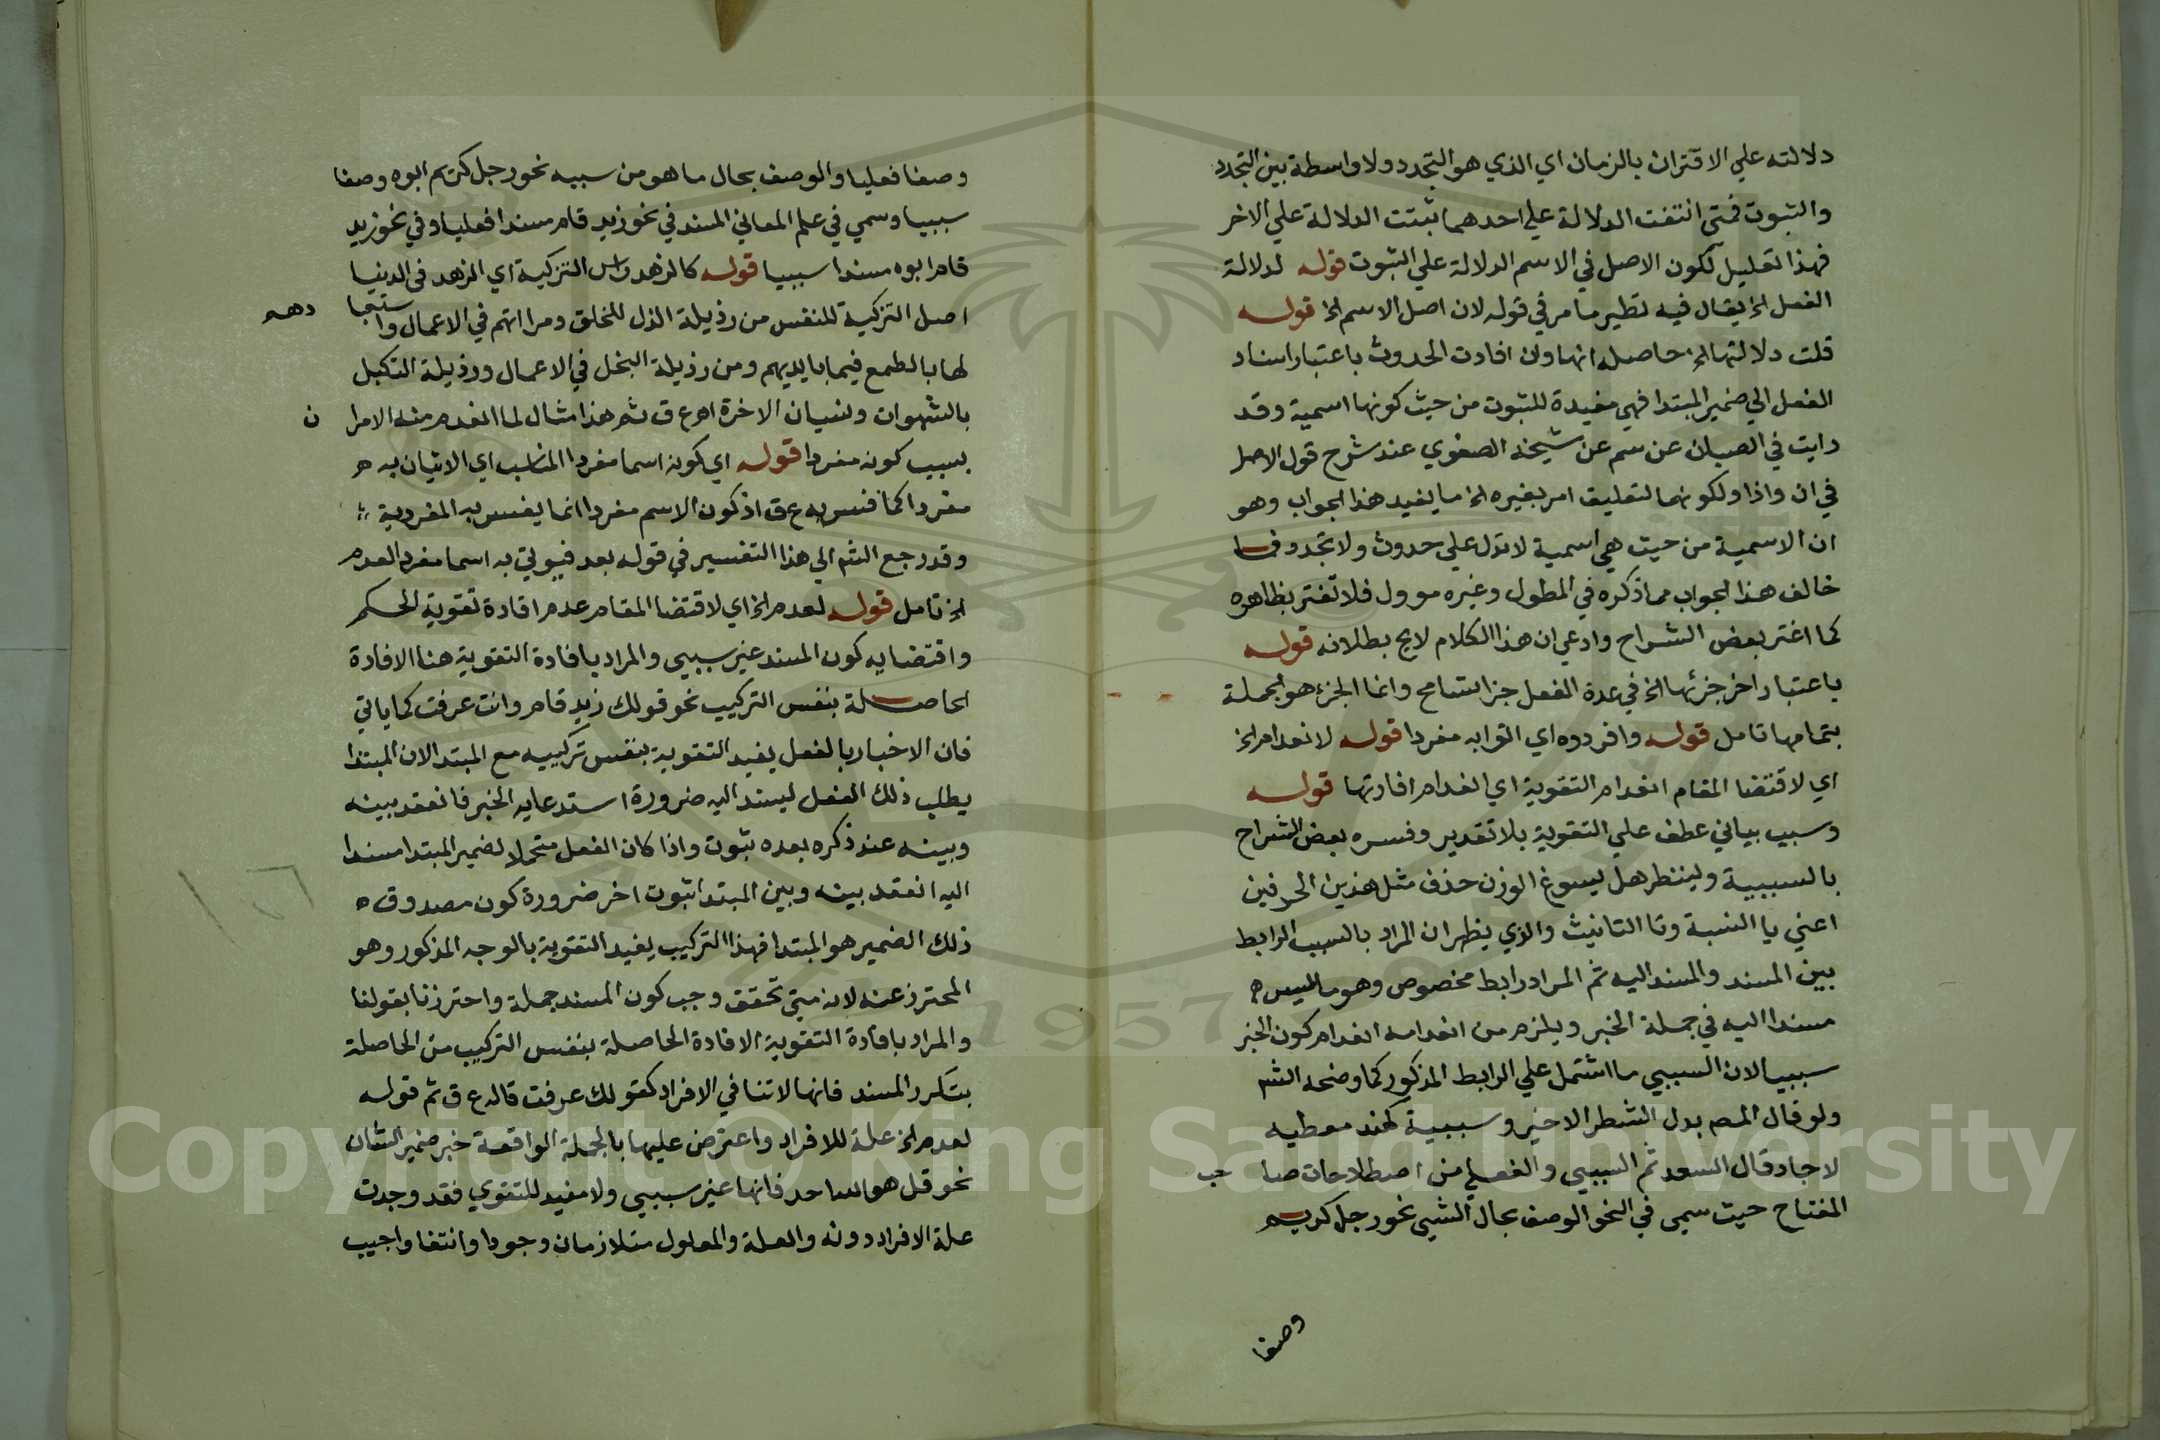 دلالته علي الاقتران بالزمان اي الذي هو التجدد ولا واسطة بين التجدد
والثبوت فمتي انتفت الدلالة علي احدهما ثبتت الدلالة علي الاخر
فهذا تعليل لكون الاصل في الاسم الدلالة علي الثبوت قوله لدلالة
الفعل الخ يقال فيه نظير ما مر في قوله لان اصل الاسم الخ قوله
قلت دلالتها الخ حاصله انها وان افادت الحدوث باعتبار اسناد
الفعل الي ضمير المبتدا فهي مفيدة للثبوت من حيث كونها اسمية وقد
رايت في الصبان عن سم عن شيخه الصفوي عند شرح قول الاصل
في ان واذا ولكونهما لتعليق امر بغيره الخ ما يفيد هذا الجواب وهو
ان الاسمية من حيث هي اسمية لا تدل علي حدوث ولا تجدد فما
خالف هذا الجواب مما ذكره في المطول وغيره موول فلا تغتر بظاهره
كما اغتر بعض الشراح وادعي ان هذا الكلام لايح بطلانه قوله
باعتبار اخر جزئها الخ في عدة الفعل جزا تسامح وانما الجزء هو الجملة
بتمامها تامل قوله وافردوه اي اتوا به مفردا قوله لانعدام الخ
اي لاقتضا المقام انعدام التقوية اي انعدام افادتها قوله
وسبب بياني عطف علي التقوية بلا تقدير وفسره بعض الشراح
بالسببية ولينظر هل يسوغ الوزن حذف مثل هذين الحرفين
اعني يا النسبة وتا التانيث والذي يظهر ان المراد بالسبب الرابط
بين المسند والمسند اليه ثم المراد رابط مخصوص وهو ما ليس
مسندا اليه في جملة الخبر ويلزم من انعدامه انعدام كون الخبر
سببيا لان السببي ما اشتمل علي الرابط المذكور كما وضحه الشم
ولو قال المصم بدل الشطر الاخير وسببية كهند معطيه
لاجاد قال السعد ثم السببي والفعلي من اصطلاحات صاحب
المفتاح حيث سمي في النحو الوصف بحال الشيي نحو رجل كريم
وصفا
وصفا فعليا والوصف بحال ما هو من سببه نحو رجل كريم ابوه وصفا
سببيا وسمي في علم المعاني المسند في نحو زيد قام مسندا فعليا وفي نحو زيد
قام ابوه مسندا سببيا قوله كالزهد راس التزكية اي الزهد في الدنيا
اصل التزكية للنفس من رذيلة الذل للخلق ومراءاتهم في الاعمال واستجا
دهم
لها بالطمع فيما بايديهم ومن رذيلة البخل في الاعمال ورذيلة التكبل
بالشهوات ونسيان الاخرة اهر ع ق ثم هذا مثال لما انعدم منه الامرا
ن
بسبب كونه مفردا قوله اي كونه اسما مفردا المناسب اي الاتيان به
مفردا كما فسر به ع ق اذ كون الاسم مفردا انما يفسر به المفردية
وقد رجع الشم الي هذا التفسير في قوله بعد فيوتي به اسما مفردا لعدم
الخ تامل قوله لعدم الخ اي لاقتضا المقام عدم افادة تقوية الحكم
واقتضايه كون المسند غير سببي والمراد بافادة التقوية هنا الافادة
الحاصلة بنفس التركيب نحو قولك زيد قام وانت عرفت كما ياتي
فان الاخبار بالفعل يفيد التقوية بنفس تركيبه مع المبتدا لان المبتدا
يطلب ذلك الفعل ليسند اليه ضرورة استدعايه الخبر فانعقد بينه
وبينه عند ذكره بعده ثبوت واذا كان الفعل متحملا لضمير المبتدا مسندا
اليه انعقد بينه وبين المبتدا ثبوت اخر ضرورة كون مصدوق
ذلك الضمير هو المبتدا فهذا التركيب يفيد التقوية بالوجه المذكور وهو
المحترز عنه لانه متي تحقق وجب كون المسند جملة واحترزنا بقولنا
والمراد بافادة التقوية الافادة الحاصلة بنفس التركيب من الحاصلة
بتكرر المسند فانها لا تنافي الافراد كقولك عرفت قاله ع ق ثم قوله
لعدم الخ علة للافراد واعترض عليها بالجملة الواقعة خبر ضمير الشان
نحو قل هو الله احد فانها غير سببي ولا مفيد للتقوي فقد وجدت
علة الافراد دونه والعلة والمعلول متلازمان وجودا وانتفا واجيب
١٥٦
1957
Copyright © King Saud University